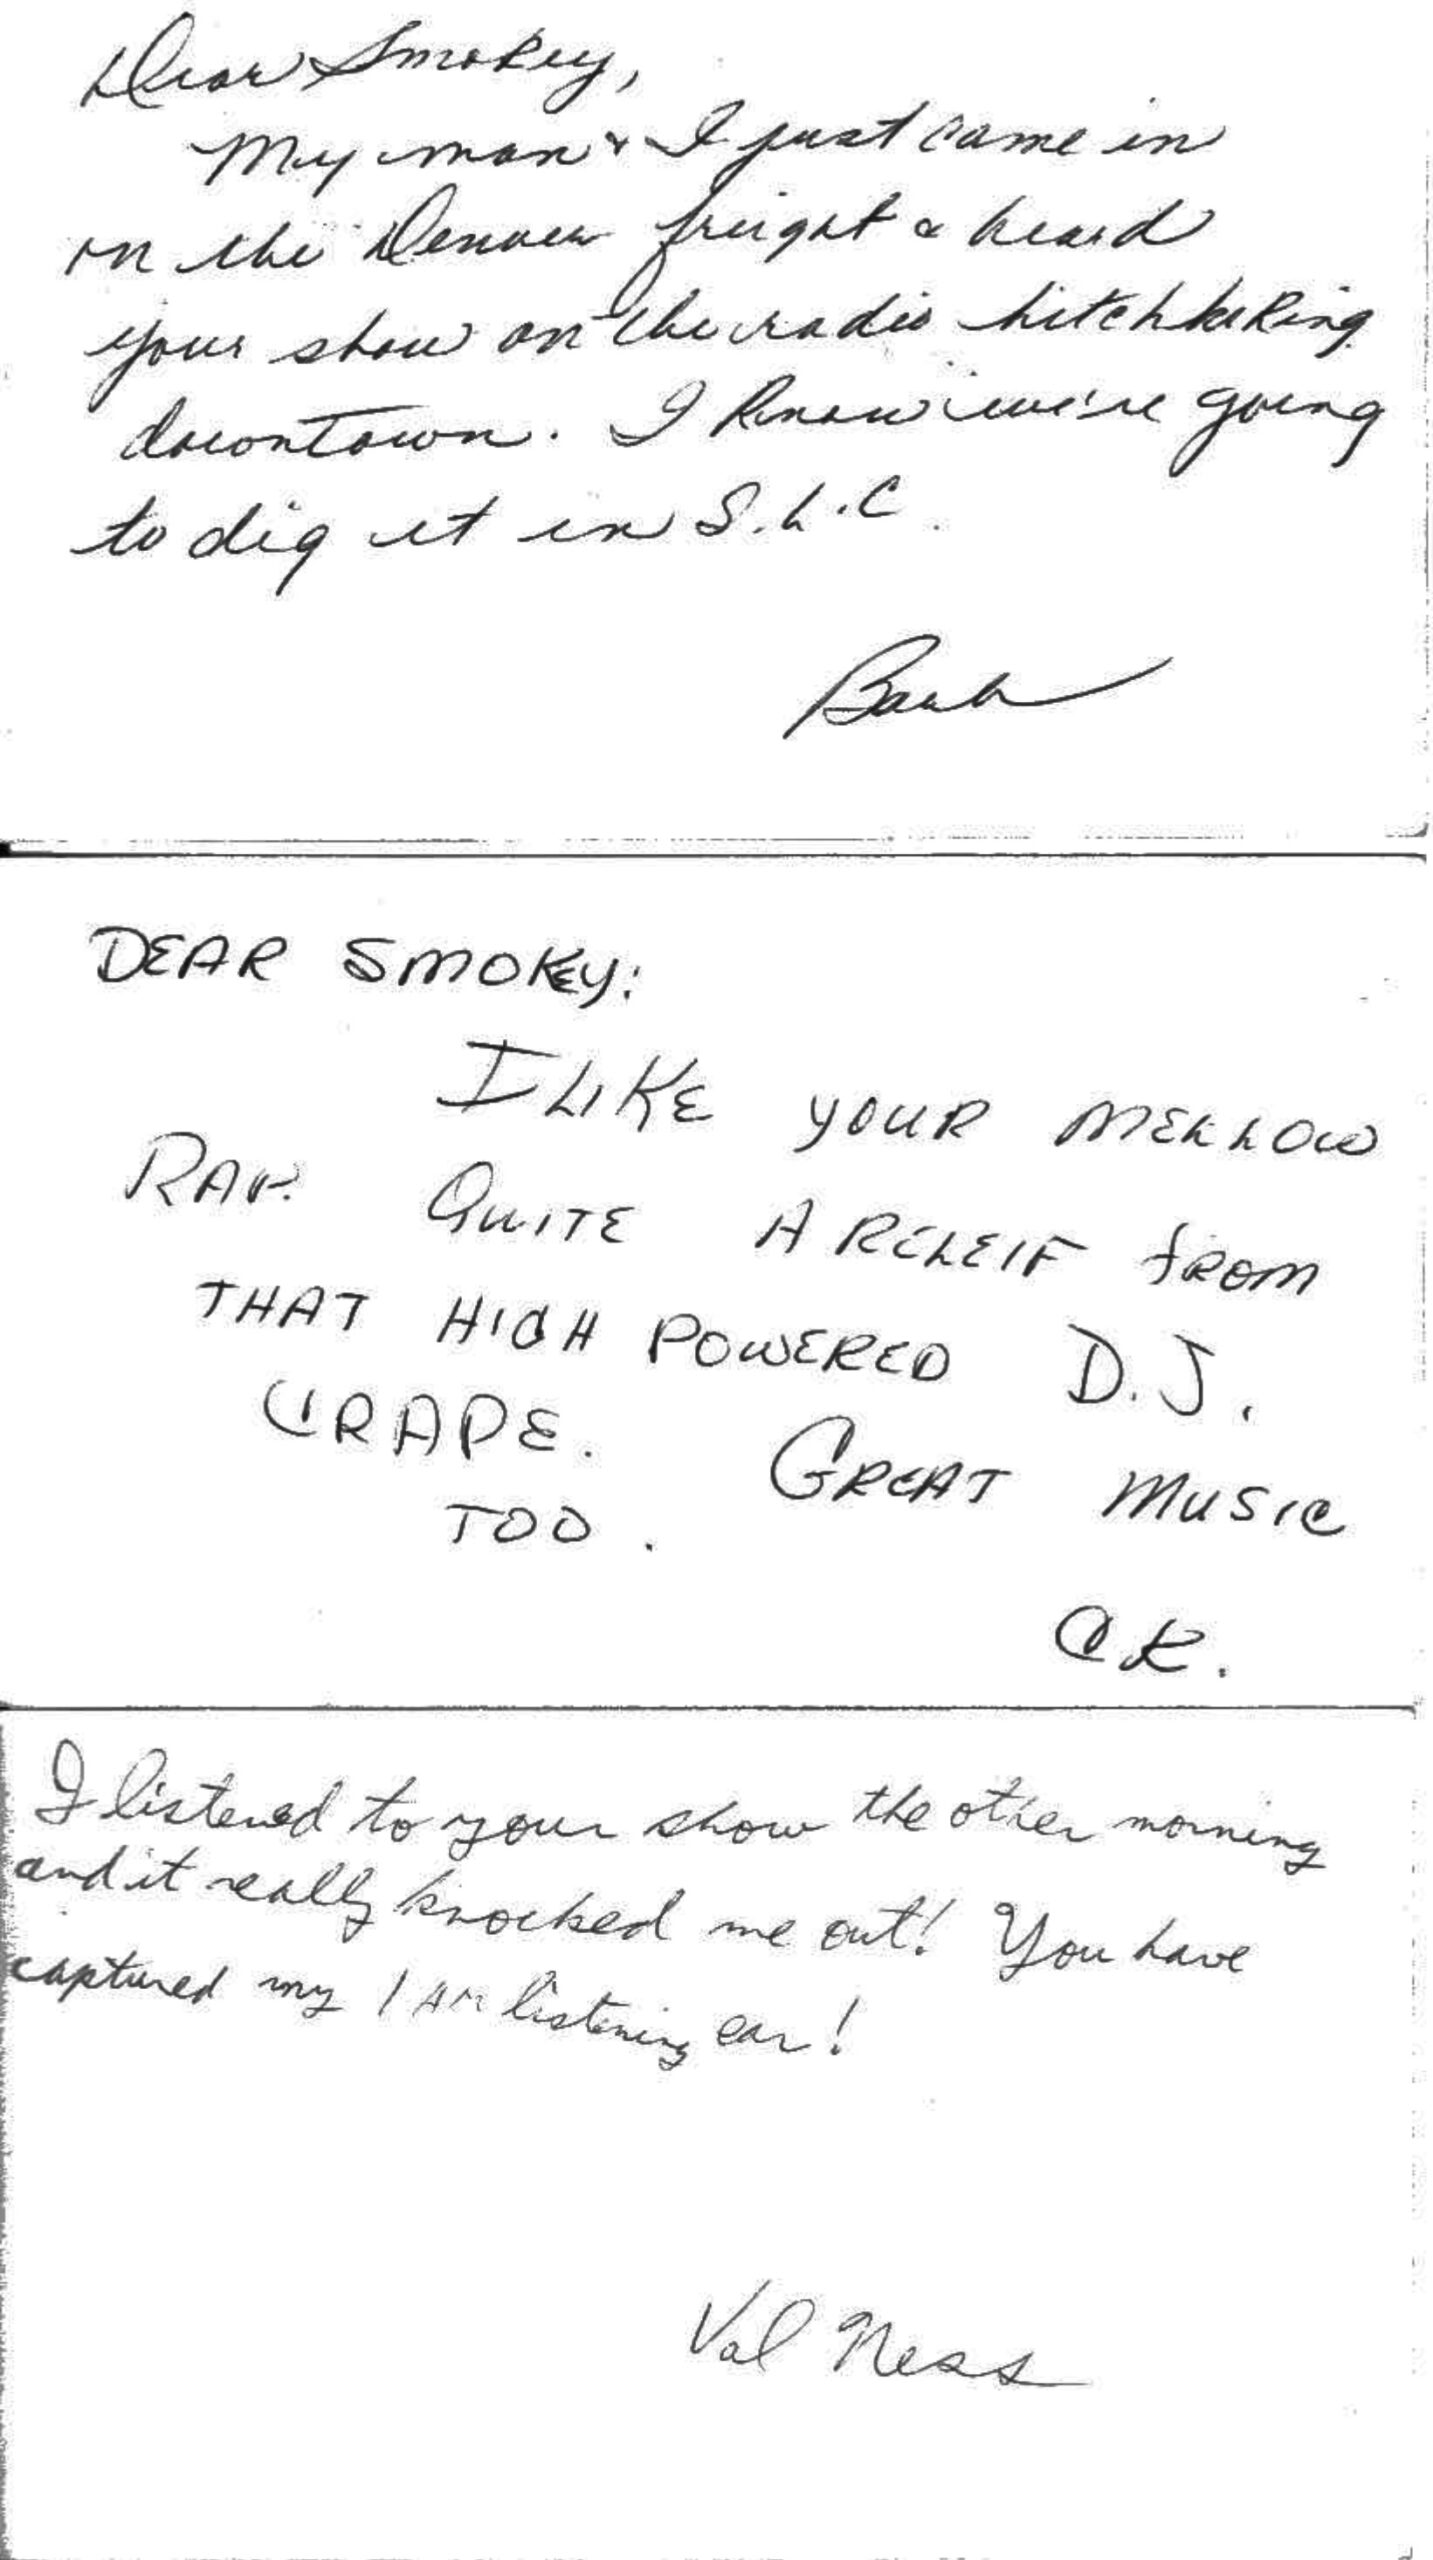 Dear Smokey,
My man & I just came in
on the Denver freight & heard
your show on the radio hitchhiking
downtown. I know we're going
to dig it in S.L.C.
Barb
DEAR SMOKEY:
I LIKE YOUR MELLOW
RAP. QUITE A RELEIF FROM
THAT HIGH POWERED D.J.
CRAPE. GREAT MUSIC
TOO.
C.K.
I listened to your show the other morning
and it really knocked me out! You have
captured my 1 AM listening ear!
Val Ness